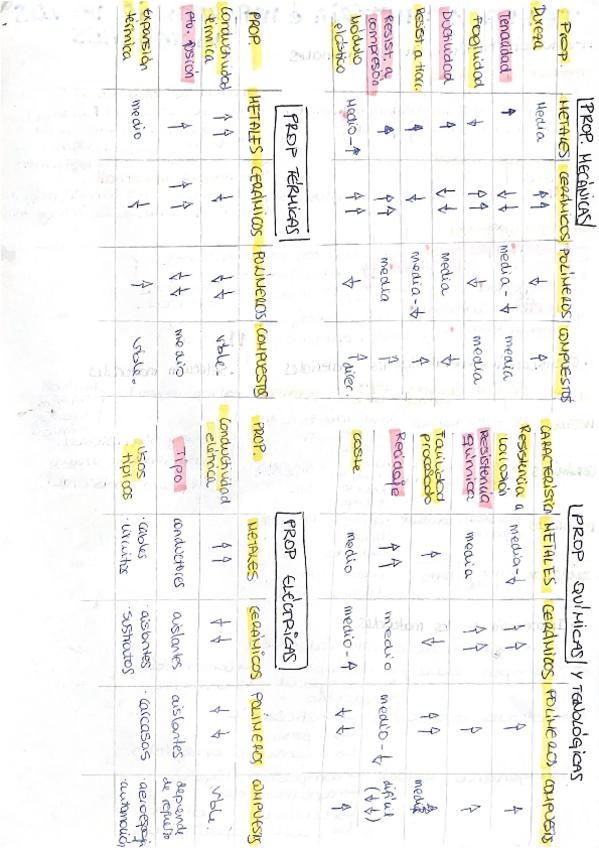 PROP. MECÁNICAS
PROP METALES CERÁMICOS POLÍMEROS COMPUESTOS
Dureza Media ↑↑ ↓ ↑
Tenacidad ↑ ↓↓ media-↓ media
Fragilidad ↓ ↑↑ ↓ media
Ductilidad ↑ ↓↓ media ↓
Resist a tracc. ↑ ↓ media-↓ ↑
Resist. a compresión ↑ ↑↑ media ↑
Módulo elástico Medio-↑ ↑↑ ↓ ↑ direc.
PROP TÉRMICAS
PROP. METALES CERÁMICOS POLÍMEROS COMPUESTOS
Conductividad térmica ↑↑ ↓ ↓↓ vble.
Pto. fusión ↑ ↑↑ ↓↓ medio
Expansión térmica medio ↓ ↑ vble.
PROP. QUÍMICAS Y TCNOLÓGICAS
CARACTERÍSTICA METALES CERÁMICOS POLÍMEROS COMPUESTOS
Resistencia a corrosión media-↓ ↑↑ ↑ ↑
Resistencia química media ↑↑ ↑ ↑
Facilidad procesado ↑ ↓ ↑↑ media
Reciclaje ↑↑ medio medio-↓ difícil (↓↓)
coste medio medio-↑ ↓↓ ↑
PROP ELÉCTRICAS
PROP. METALES CERÁMICOS POLÍMEROS COMPUESTOS
Conductividad elétrica ↑↑ ↓↓ ↓↓ vble.
Tipo conductores aislantes aislantes depende de refuerzo
Usos típicos ·cables ·circuitos ·aislantes ·sustratos ·carcasas